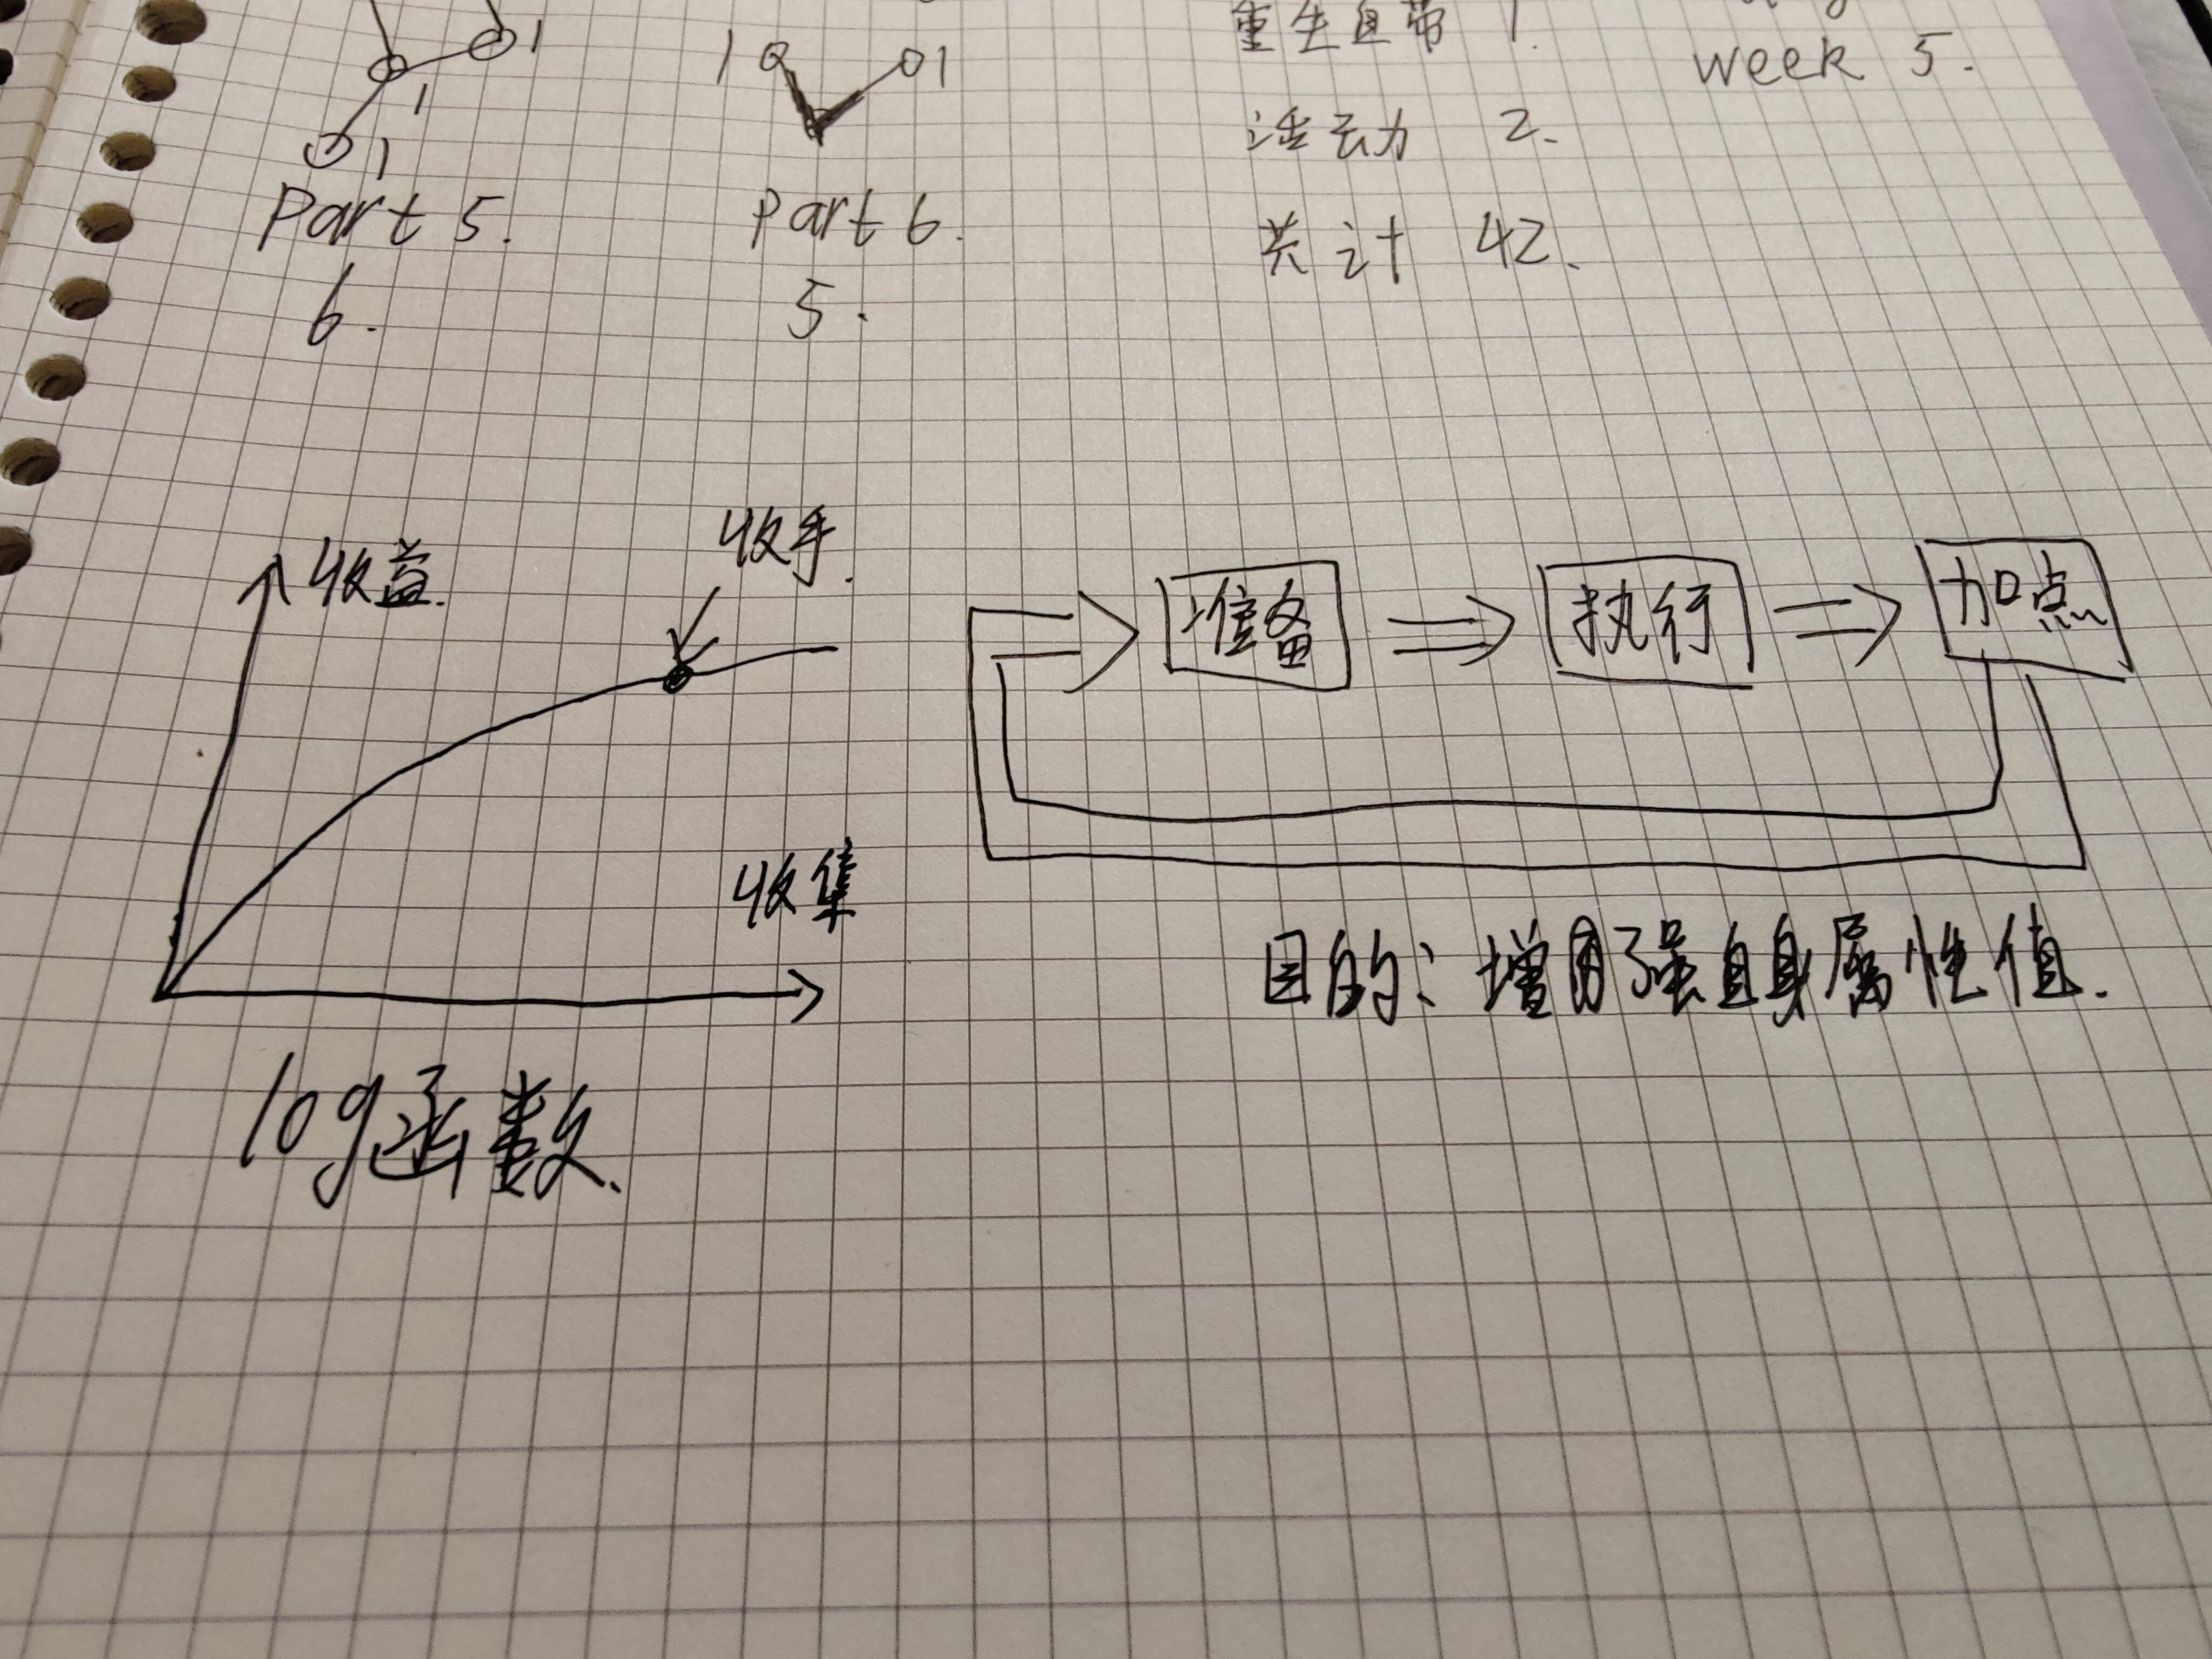 1
重生自带 1.
week 5.
1
1
1
1
活动 2.
Part 5.
Part 6.
共计 42.
6.
5.
收手.
收益.
准备
执行
加点
收集
目的: 增强自身属性值.
log函数.